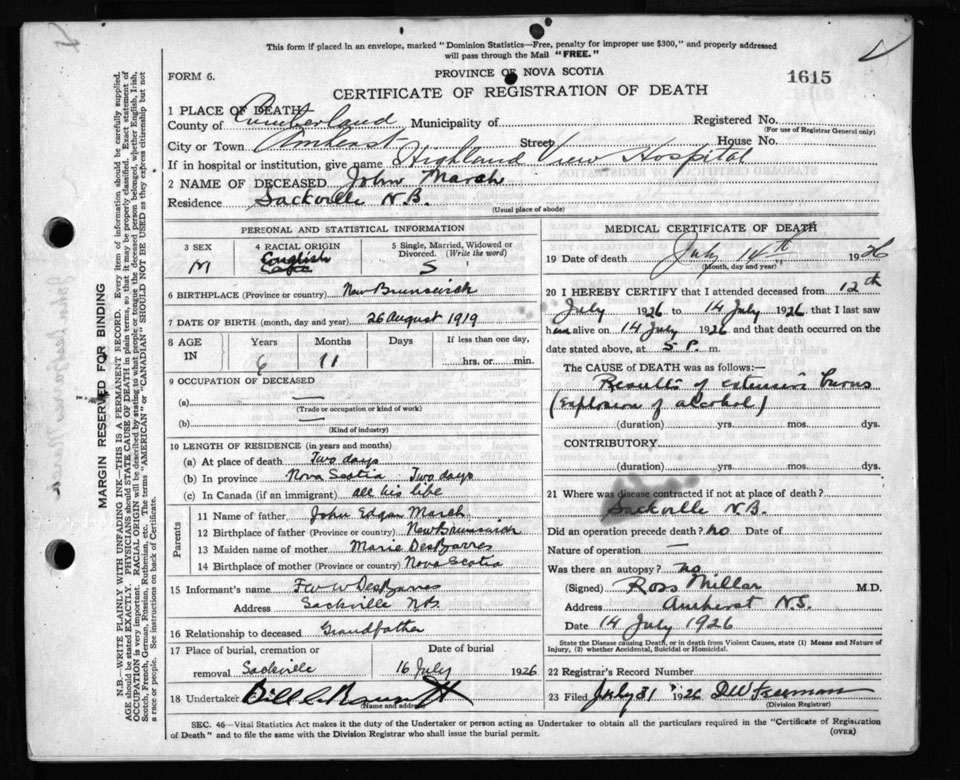 This form if placed in an envelope, marked "Dominion Statistics—Free, penalty for improper use $300," and properly addressed
will pass through the Mail "FREE."
FORM 6.
PROVINCE OF NOVA SCOTIA
1615
CERTIFICATE OF REGISTRATION OF DEATH
1 PLACE OF DEATH
County of Cumberland Municipality of Registered No.
(For use of Registrar General only)
City or Town Amherst Street House No.
If in hospital or institution, give name Highland View Hospital
2 NAME OF DECEASED John March
Residence Sackville N.B.
(Usual place of abode)
PERSONAL AND STATISTICAL INFORMATION
3 SEX
M
4 RACIAL ORIGIN
English
5 Single, Married, Widowed or
Divorced. (Write the word)
S
6 BIRTHPLACE (Province or country) New Brunswick
7 DATE OF BIRTH (month, day and year) 26 August 1919
8 AGE
IN
Years
6
Months
11
Days
If less than one day,
hrs. or min.
9 OCCUPATION OF DECEASED
(a) —
(Trade or occupation or kind of work)
(b) —
(Kind of industry)
10 LENGTH OF RESIDENCE (in years and months)
(a) At place of death Two days
(b) In province Nova Scotia Two days
(c) In Canada (if an immigrant) all his life
Parents
11 Name of father John Edgar March
12 Birthplace of father (Province or country) New Brunswick
13 Maiden name of mother Marie DesBarres
14 Birthplace of mother (Province or country) Nova Scotia
15 Informant's name F W DesBarres
Address Sackville N.B.
16 Relationship to deceased Grandfather
17 Place of burial, cremation or
removal Sackville
Date of burial
16 July 1926
18 Undertaker
(Name and address)
MEDICAL CERTIFICATE OF DEATH
19 Date of death July 14th 1926
(Month, day and year)
20 I HEREBY CERTIFY that I attended deceased from 12th
July 1926 to 14 July 1926 that I last saw
him alive on 14 July 1926 and that death occurred on the
date stated above, at 5 P. m.
The CAUSE of DEATH was as follows:—
Results of extensive burns
(Explosion of alcohol)
(duration) yrs. mos. dys.
CONTRIBUTORY
(duration) yrs. mos. dys.
21 Where was disease contracted if not at place of death?
Sackville N.B.
Did an operation precede death? no Date of
Nature of operation —
Was there an autopsy? no
(Signed) Ross Millar M.D.
Address Amherst N.S.
Date 14 July 1926
State the Disease causing Death, or in death from Violent Causes, state (1) Means and Nature of
Injury, (2) whether Accidental, Suicidal or Homicidal.
22 Registrar's Record Number
23 Filed July 31 1926 DW Freeman
(Division Registrar)
SEC. 46—Vital Statistics Act makes it the duty of the Undertaker or person acting as Undertaker to obtain all the particulars required in the "Certificate of Registration
of Death" and to file the same with the Division Registrar who shall issue the burial permit.
(OVER)
MARGIN RESERVED FOR BINDING
N.B.—WRITE PLAINLY WITH UNFADING INK—THIS IS A PERMANENT RECORD. Every item of information should be carefully supplied.
AGE should be stated EXACTLY. PHYSICIANS should STATE CAUSE OF DEATH in plain terms, so that it may be properly classified. Exact statement of
OCCUPATION is very important. RACIAL ORIGIN will be described by stating to what people or tongue the deceased person belonged, whether English, Irish,
Scotch, French, German, Russian, Ruthenian, etc. The terms "AMERICAN" or "CANADIAN" SHOULD NOT BE USED as they express citizenship but not
a race or people. See instructions on back of Certificate.